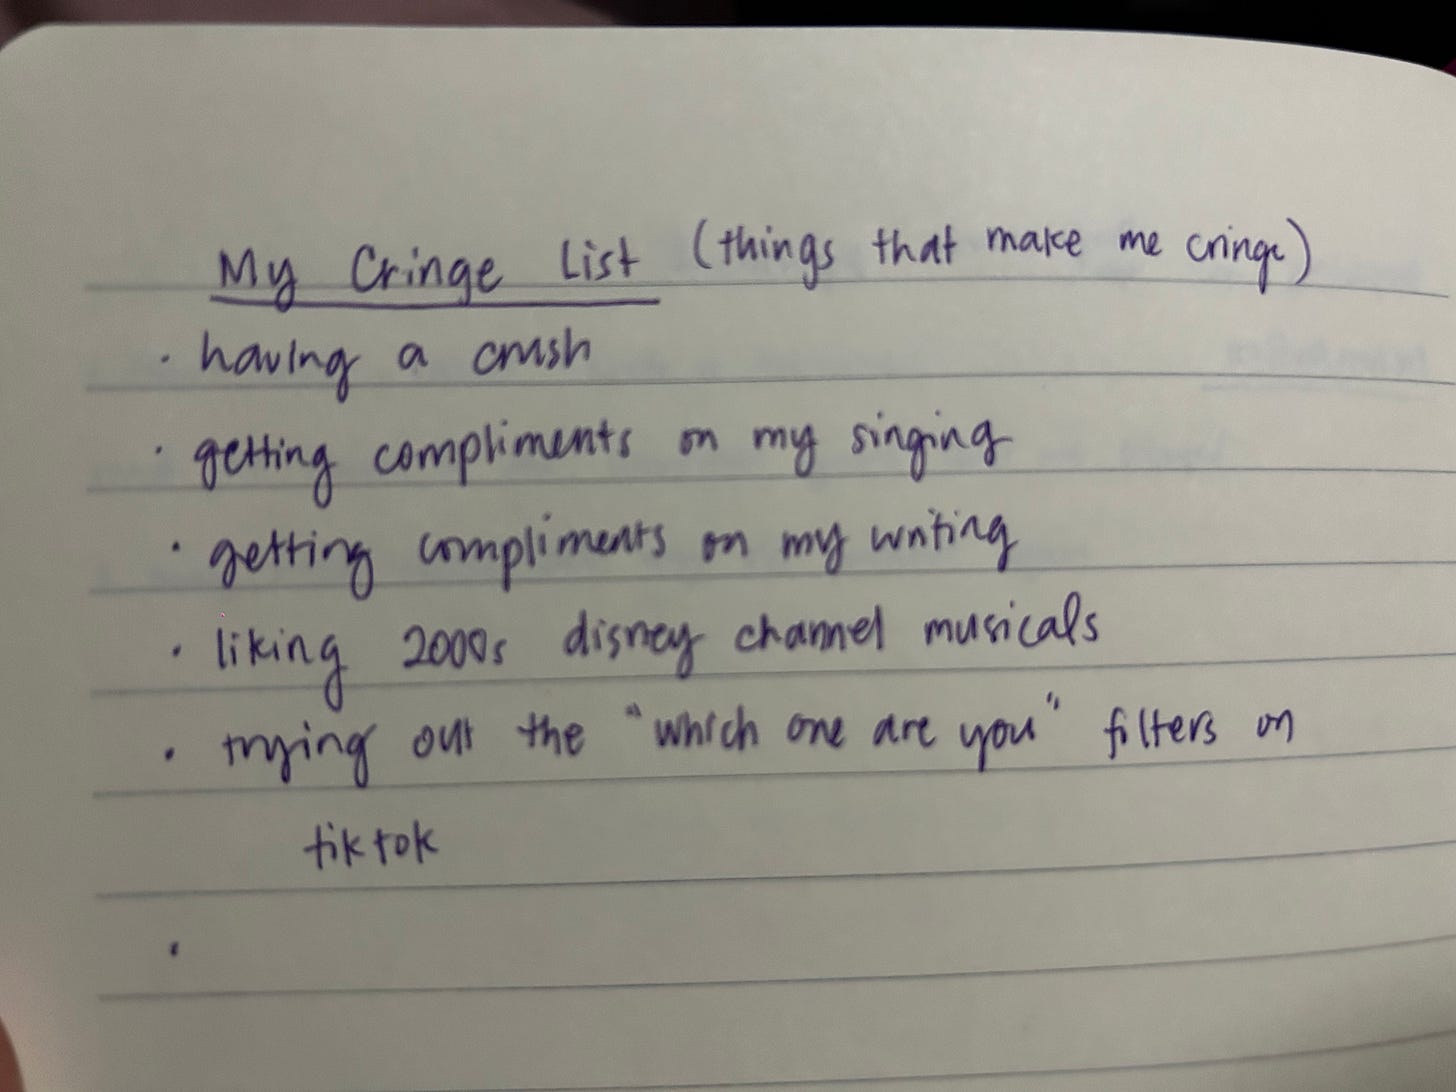 My Cringe List (things that make me cringe)
· having a crush
· getting compliments on my singing
· getting compliments on my writing
· liking 2000s disney channel musicals
· trying out the "which one are you" filters on
tiktok
·